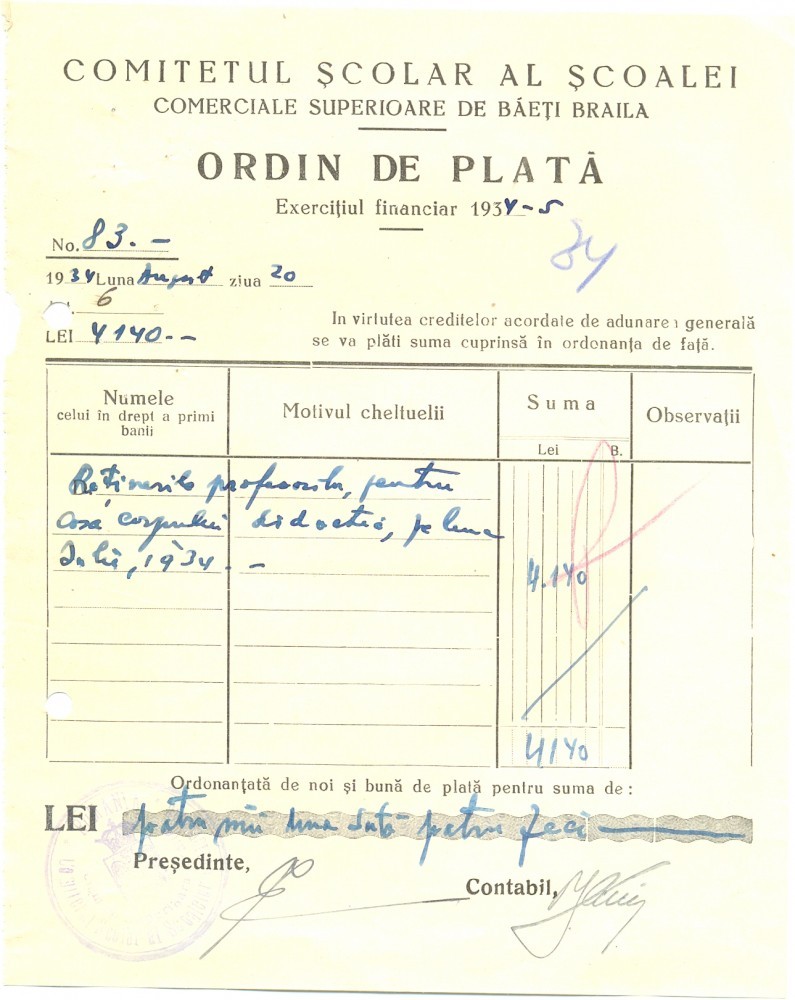 COMITETUL ȘCOLAR AL ȘCOALEI
COMERCIALE SUPERIOARE DE BĂEȚI BRAILA
ORDIN DE PLATĂ
Exercițiul financiar 1934-5
No. 83.-
34
1934 Luna August ziua 20
6
LEI 4140--
In virtutea creditelor acordate de adunarea generală
se va plăti suma cuprinsă în ordonanța de față.
Numele
celui în drept a primi
banii
Motivul cheltuelii
Suma
Lei B.
Observații
Reținerile profesorilor, pentru
casa corpului didactic, pe luna
Iulie, 1934.-
4.140
4140
Ordonanțată de noi și bună de plată pentru suma de:
LEI patru mii una sută patru zeci
Președinte,
Contabil,